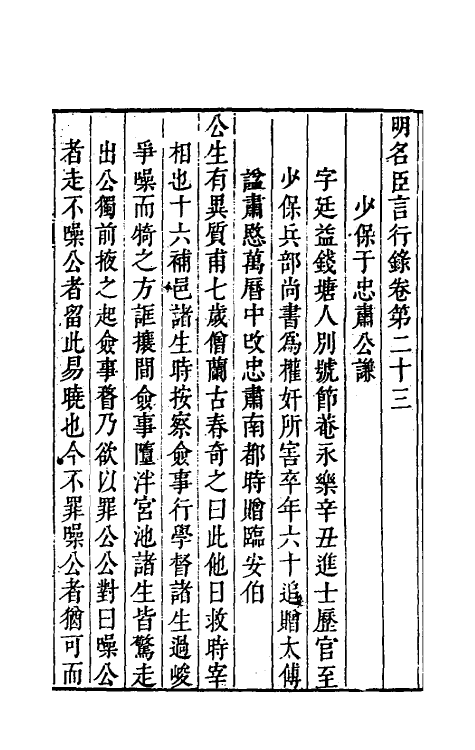 明名臣言行錄卷第二十三
少保于忠肅公謙
字廷益錢塘人別號節菴永樂辛丑進士歷官至
少保兵部尚書為權奸所害卒年六十追贈太傅
諡肅愍萬曆中改忠肅南都時贈臨安伯
公生有異質甫七歲僧蘭古春奇之曰此他日救時宰
相也十六補邑諸生時按察僉事行學督諸生過峻
爭噪而犄之方誆攘間僉事墮泮宮池諸生皆驚走
出公獨前掖之起僉事瞀乃欲以罪公公對曰噪公
者走不噪公者留此易曉也今不罪噪公者猶可而